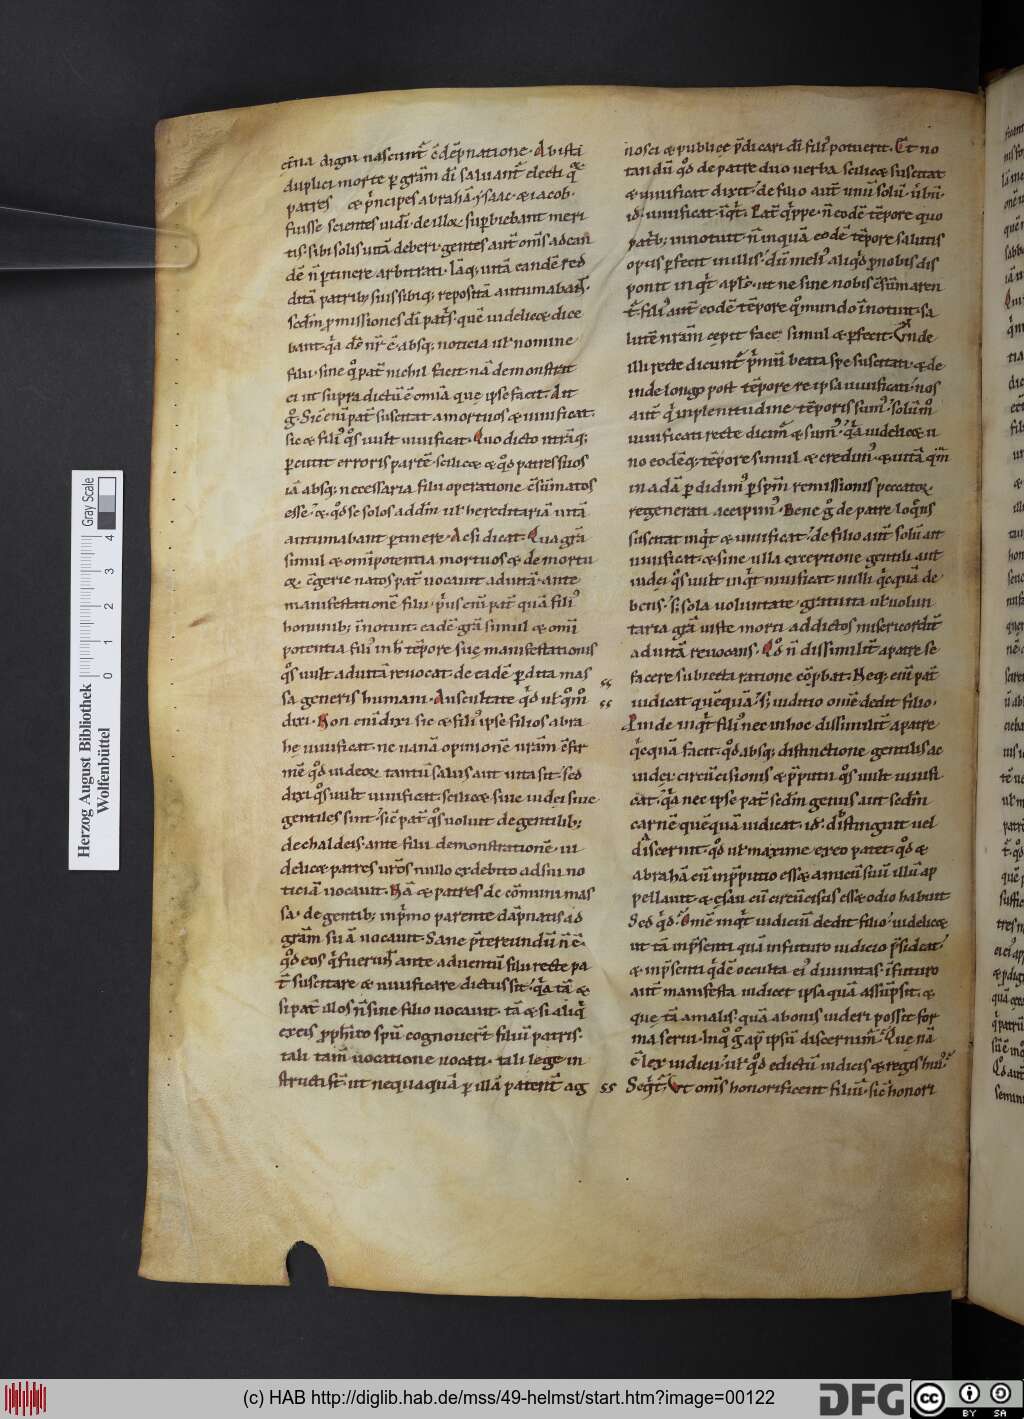 duplici morte ꝑ grām dī saluant᷑ electi
patres & p̄ncipes abrahā ysaac & iacob.
fuisse scientes iudī de illoꝝ suꝑbiebant meri
tis. sibi solis uitā deberi. gentes aut̄ om̄s ad ean
dē n̄ ꝑtinere arbitrati. uitā eandē red
ditā patrib; suis sibiq; repositā autumabant.
scdm̄ ꝓmissiones dī pat̄s. quē uidelic& dice
bant. q̄a dc̄ nr̄ ē absq; noticia ul̓ nomine
filii. sine quo pat̄ nichil facit. nā demonstrat
ei ut supra dictū ē omīa que ipse facit. Ait
g̊. Sic̄ enī pat̄ suscitat a mortuos & uiuificat.
sic & fili᷒ q̊s uult uiuificat. Quo dicto utrāq;
ꝑcutit erroris partē. scilic& & qd̊ patres suos
iā absq; necessaria filii operatione
esse. & qd̊ se solos ad dm̄ ul̓ hereditariā uitā
autumabant ꝑtinere. Ac si dicat. Qua grā
simul & omīpotentia mortuos & de mortu
natos pat̄ uocauit ad uitā. ante
manifestationē filii. p̄us enī pat̄ quā fili᷒
hominib; īnotuit. eadē grā simul & omī
potentia fili᷒ in h̄ tēpore suę manifestationis
q̊s uult ad uitā reuocat. de eadē ꝑdita mas
sa generis humani. Auscultate qd̊ ul̓ q̊m̊
dixi. Non enī dixi sic & fili᷒ ipse filios abra
hę uiuificat. ne uanā opinionē urām c̄fir
mē qd̊ iudeoꝝ tantū salus aut uita sit. sed
dixi q̊s uult uiuificat. scilic& siue iudei siue
gentiles sint. sic̄ pat̄ q̊s uoluit de gentilib;
de chaldeis. ante filii demonstrationē. ui
delic& patres uros nullo ex debito ad sui no
ticiā uocauit. Nā & patres de cōmuni mas
sa. de gentib; in p̄mo parente dāpnatis ad
grām suā uocauit. Sane p̄tereundū n̄ ē.
qd̊ eos q̄ fuerunt ante aduentū filii recte pa
t̄ suscitare & uiuificare dictus sit. q̄a tā &
si pat̄ illos n̄ sine filio uocauit. tā & si aliq̄
ex eis ꝓphīto spū cognouer̄t filiū patris.
tali tam̄ uocatione uocati. tali lege in
structi st̄. ut nequaquā ꝑ illā patent᷑ ag
nosci & publice p̄dicari dī fili᷒ potuerit. Et no
tandū qd̊ de patre duo uerba scilic& suscitat
& uiuificat dixit. de filio aut̄ unū solū. ubū.
id̄. uiuificat. inq̄t. Pat̄ q̄ppe. n̄ eodē tēpore quo
patrib; innotuit n̄ inquā eodē tēpore salutis
opus ꝑfecit in illis. dū meli᷒ aliqd̊ ꝓ nobis dis
ponit. inq̄t apl̄s. ut ne sine nobis c̄sūmaren
t᷑. fili᷒ aut̄ eodē tēpore quo mundo īnotuit. sa
lutē nrām cepit facere simul & ꝑfecit. Vnde
illi recte dicunt᷑ beata spe suscitati. & de
inde longo post tēpore re ipsa uiuificati. nos
aut̄ q̄ in plenitudine tēporis sum᷒. solūm̊
uiuificati recte dicim᷑ & sum᷒. q̄a uidelic& u
no eodēq; tēpore simul & credim᷒. & uitā quam
in adā ꝑdidim᷒ ꝑ spm̄ remissionis peccatoꝝ.
regenerati accipim᷒. Bene g̊ de patre loq̄ns
suscitat inq̄t & uiuificat. de filio aut̄ solū ait
uiuificat. & sine ulla exceptione gentili aut
iudei. q̊s uult inq̄t uiuificat. nulli q̄cquā de
bens. s; sola uoluntate. gratuita ul̓ uolun
taria grā iuste morti addictos misericordit̄
ad uitā reuocans. Qd̊ n̄ dissimilit̄ a patre se
facere subiecta ratione cōpbat. Neq; enī pat̄
iudicat quēquā. s; iuditio omē dedit filio.
Inde inq̄t fili᷒ nec in hoc dissimilit̄ a patre
q̄cquā facit. qd̊ absq; distinctione gentilis ac
iudei circūcisionis & p̄putii q̊s uult uiuifi
cat. q̄a nec ipse pat̄ scdm̄ genus aut scdm̄
carnē quēquā iudicat. id̄. distinguit uel
discernit. qd̊ ul̓ maxime ex eo patet. qd̊ &
abrahā eū in p̄putio esset amicū suū illū ap
pellauit. & esau cū circūcisus esset odio habuit
Sed qd̊. Omē inq̄t iudiciū dedit filio. uidelic&
ut tā in p̄senti quā in futuro iudicio p̄sideat.
& in p̄senti q̄dē occulta ei᷒ diuinitas. in futuro
aut̄ manifesta iudicet ipsa quā assūpsit. &
que tā a malis quā a bonis uideri possit for
ma serui. Que nā
ē lex iudicii. ul̓ qd̊ edictū iudicis & regis hui᷒.
Seqt̄. Vt om̄s honorificent filiū. sic̄ honori
Herzog August Bibliothek
Wolfenbüttel
0 1 2 3 4
Gray Scale
(c) HAB http://diglib.hab.de/mss/49-helmst/start.htm?image=00122
DFG
cc
BY SA